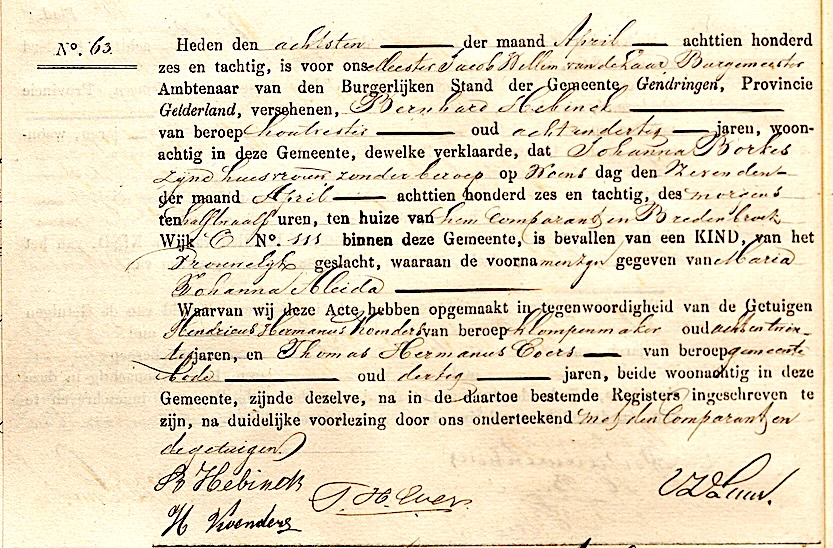 No. 63.
Heden den achtsten der maand April achttien honderd
zes en tachtig, is voor ons Meester Jacob Willem van de Laar Burgemeester
Ambtenaar van den Burgerlijken Stand der Gemeente Gendringen, Provincie
Gelderland, versehenen, Bernhard Hebinck
van beroep houtvester oud achtendertig jaren, woon-
achtig in deze Gemeente, dewelke verklaarde, dat Johanna Borkes
zijne huisvrouw zonder beroep op Woens dag den Zevenden
der maand April achttien honderd zes en tachtig, des morgens
ten half twaalf uren, ten huize van hem Comparant, in Bredenbroek
Wijk E No. 111 binnen deze Gemeente, is bevallen van een KIND, van het
Vrouwelijk geslacht, waaraan de voornamen zijn gegeven van Maria
Johanna Aleida
Waarvan wij deze Acte hebben opgemaakt in tegenwoordigheid van de Getuigen
Hendricus Hermanus Koenders van beroep klompenmaker oud acht en twin-
tig jaren, en Thomas Hermanus Evers van beroep gemeente
bode oud dertig jaren, beide woonachtig in deze
Gemeente, zijnde dezelve, na in de daartoe bestemde Registers ingeschreven te
zijn, na duidelijke voorlezing door ons onderteekend met den Comparant, en
de getuigen.
B Hebinck T. H. Evers
H Koenders